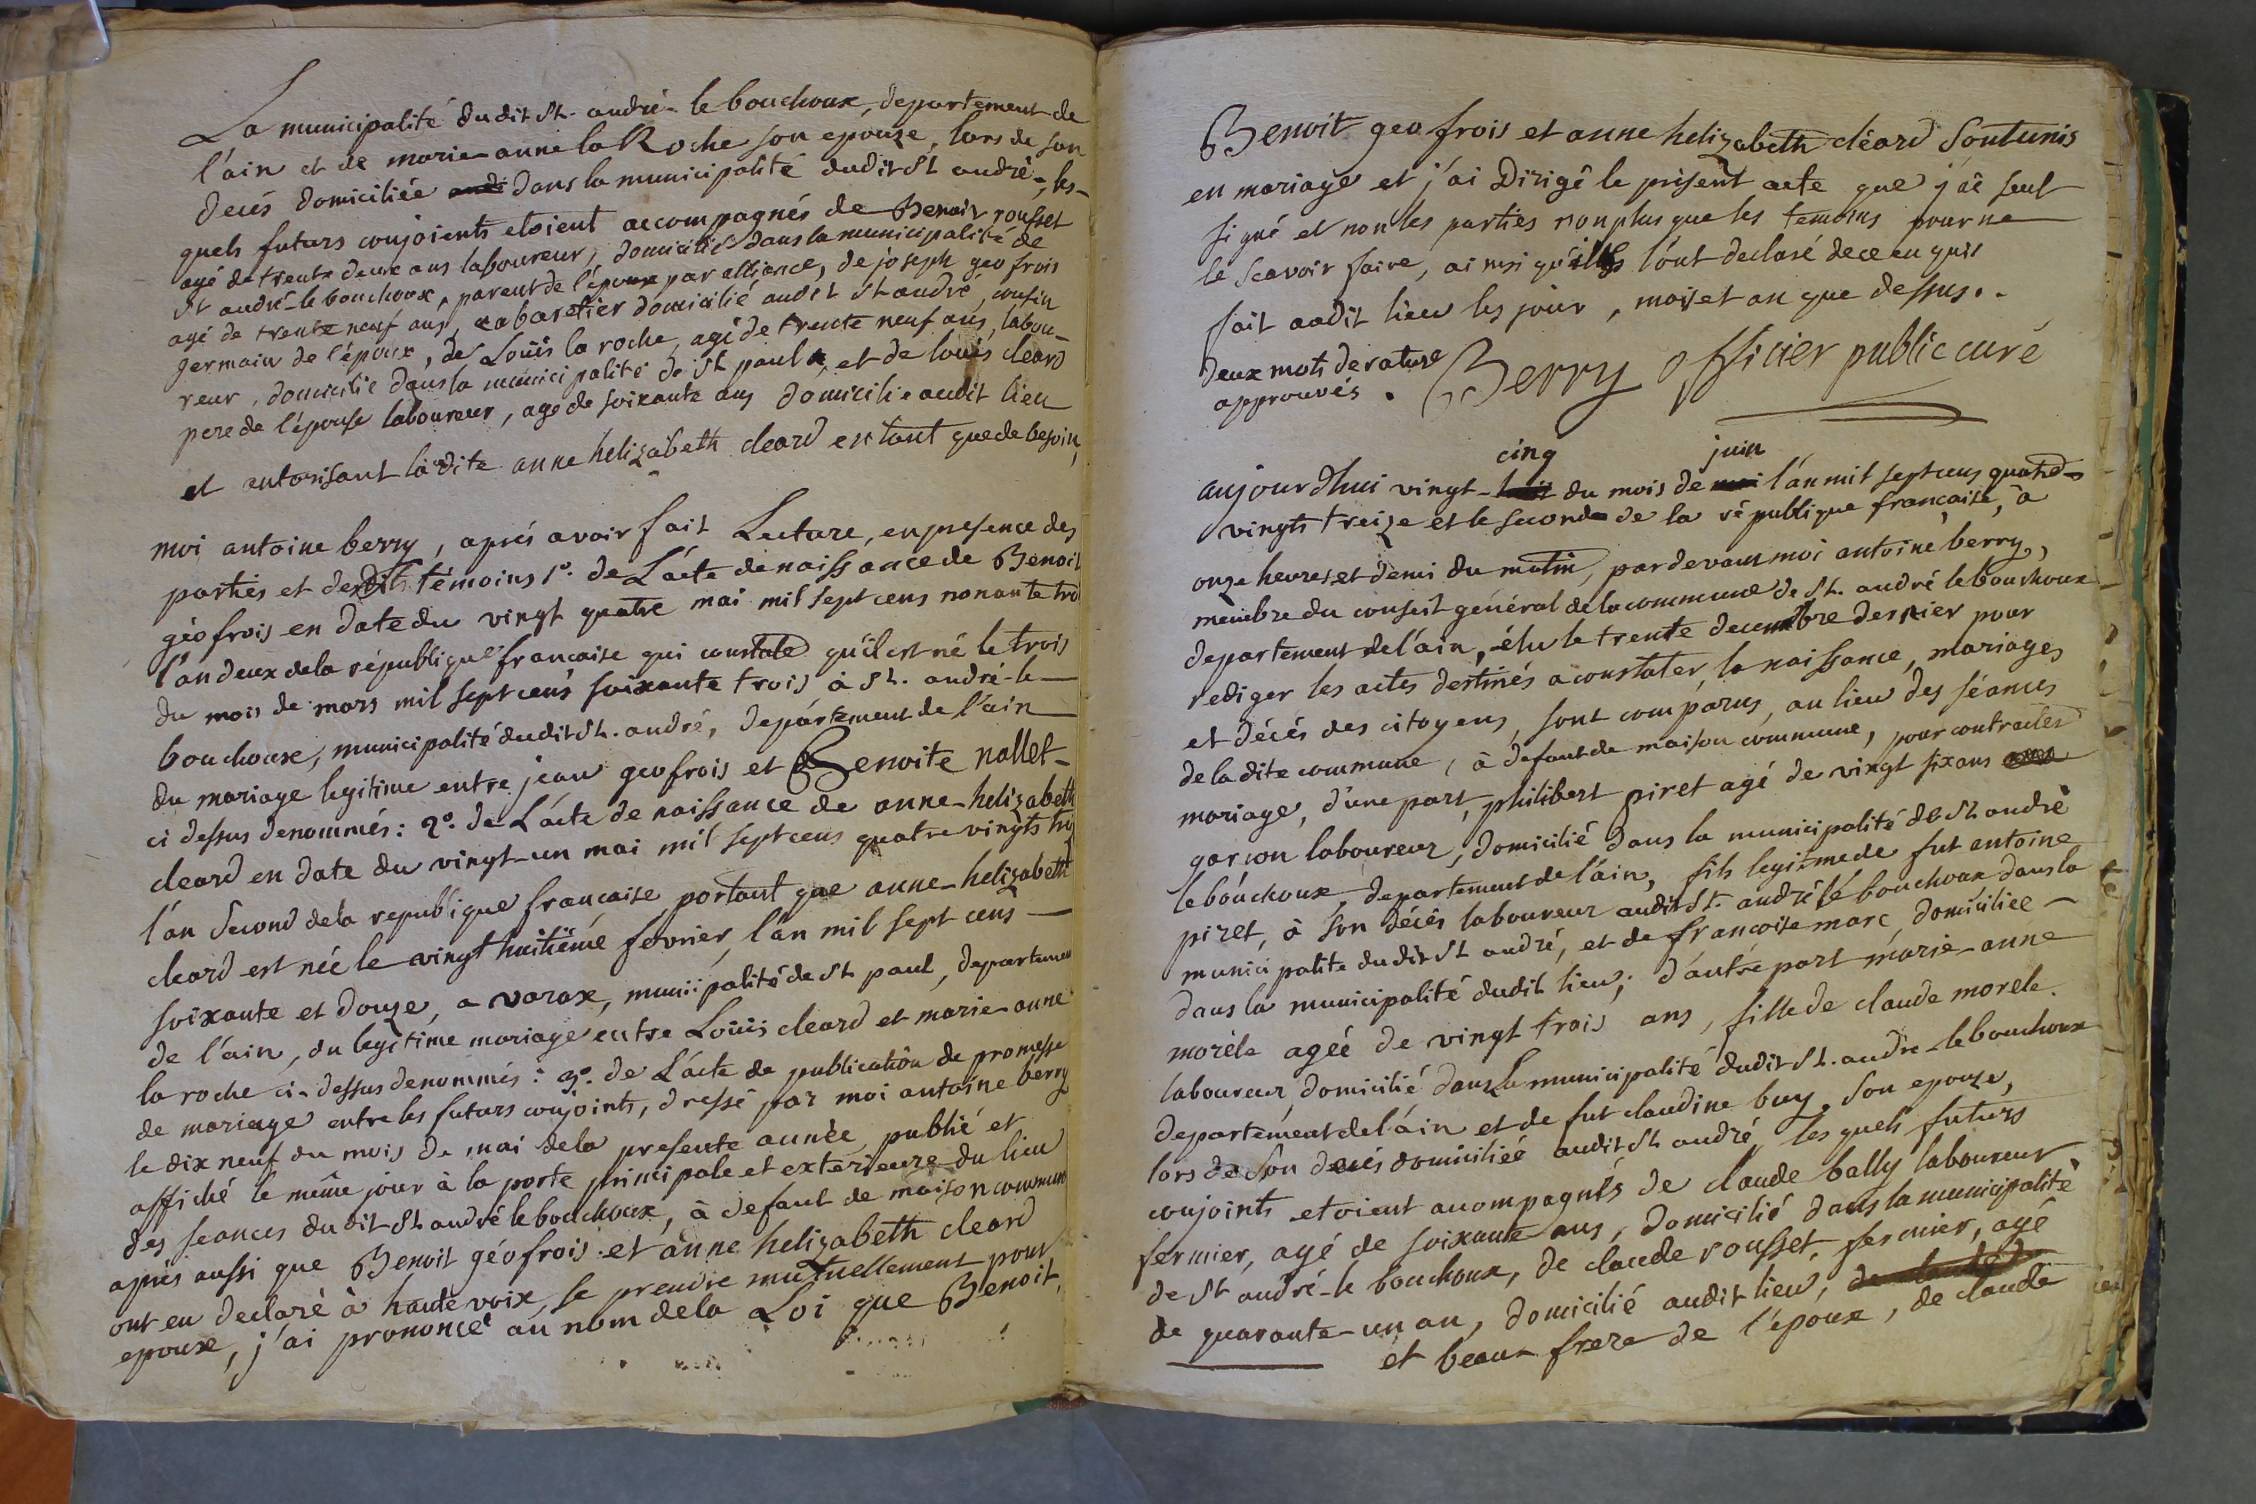 La municipalité dudit St. andré-le bouchoux, departement de
l'ain et de marie-anne la Roche son epouze, lors de son
decés domiciliée dans la municipalité dudit St andré-, les-
quels futurs conjoients etoient accompagnés de Benoit rousset
agé de trente deux ans laboureur, domicilié dans la municipalité de
St andré-le bouchoux, parent de l'époux par alliance, de joseph geofrois
agé de trente neuf ans, cabaretier domicilié audit St andré, cousin
germain de l'époux, de Loüis la roche, agé de trente neuf ans, labou-
reur, domicilié dans la municipalité de St paul, et de louis cleard
pere de l'épouse laboureur, agé de soixante ans domicilié audit lieu
et autorisant ladite anne helizabeth cleard en tant que de besoin,
moi antoine berry, aprés avoir fait Lecture, en presence des
parties et desdits témoins 1°. de L'acte de naissance de Benoit
géofrois en date du vingt quatre mai mil sept cens nonante troi
l'an deux de la république francaise qui constate qu'il est né le trois
du mois de mars mil sept cens soixante trois à St. andré-le-
bouchoux, municipalité dudit St. andré, departement de l'ain
du mariage legitime entre jean geofrois et Benoite nallet-
ci dessus denommés: 2°. de L'acte de naissance de anne-helizabeth
cleard en date du vingt-un mai mil sept cens quatre vingts trei
l'an Second de la republique francaise, portant que anne-helizabeth
cleard est née le vingt huitiéme fevrier, l'an mil sept cens
soixante et douze, a varax, municipalité de St paul, departemen
de l'ain, du legitime mariage entre Loüis cleard et marie-anne
la roche ci-dessus denommés: 3°. de L'acte de publication de promesse
de mariage entre les futurs conjoints, dressé par moi antoine berry
le dix neuf du mois de mai de la presente année, publié et
affiché le même jour à la porte principale et exterieure du lieu
des seances dudit St andré le bouchoux, à defaut de maison commune
aprés aussi que Benoit géofrois et anne helizabeth cleard
ont eu declaré à haute voix, se prendre mutuellement pour
epoux, j'ai prononcé au nom de la Loi que Benoit,
Benoit geofrois et anne helizabeth cléard Sont unis
en mariage et j'ai Dirigé le présent acte que j'ai seul
signé et non les parties non plus que les temoins pour ne
le scavoir faire, ainsi qu'ils l'ont declaré de ce enquis
fait audit lieu les jour, mois et an que dessus..
deux mots de rature
approuvés. Berry officier public curé
cinq juin
aujourdhui vingt- du mois de l'an mil sept cens quatre-
vingts treize et le second de la république francaise, à
onze heures et demi du matin, pardevant moi antoine berry,
membre du conseil général de la commune de St. andré le bouchoux
departement de l'ain, élu le trente decembre dernier pour
rediger les actes destinés a constater, la naissance, mariages
et décés des citoyens, sont comparus, au lieu des séances
de la dite commune, à defaut de maison commune, pour contracter
mariage, d'une part, philibert piret agé de vingt six ans
garcon laboureur, domicilié dans la municipalité de St andré
le bouchoux, departement de l'ain, fils legitime de fut antoine
piret, à son décés laboureur audit St. andré le bouchoux dans la
municipalité dudit St andré, et de francoise marc, domiciliée-
dans la municipalité dudit lieu; d'autre part marie-anne
moréle agéé de vingt trois ans, fille de claude morele.
laboureur, domicilié dans la municipalité dudit St. andre-le bouchoux
departement de l'ain et de fut claudine buy, son epouze,
lors de Son decés domiciliée audit St andré, les quels futurs
conjoints etoient acompagnés de claude bally laboureur
fermier, agé de soixante ans, domicilié dans la municipalité
de St andré-le bouchoux, de claude rousset, fermier, agé
de quarante-un an, domicilié audit lieu,
et beau-frere de l'époux, de claude